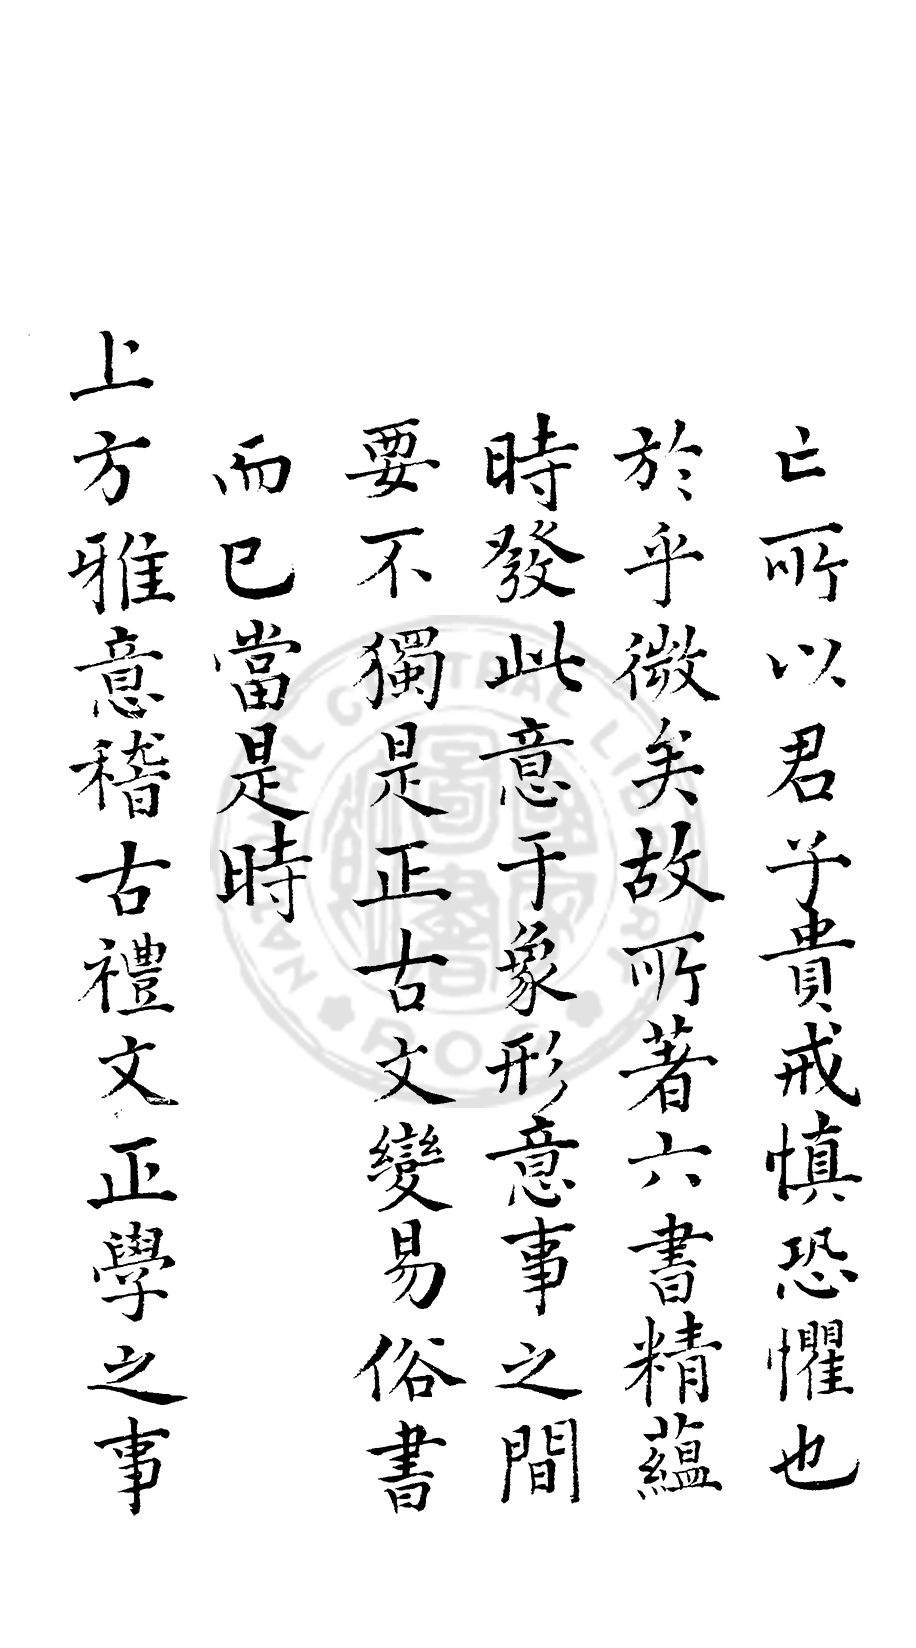 亡所以君子貴戒慎恐懼也
於乎微矣故所著六書精蘊
時發此意于象形意事之間
要不獨是正古文變易俗書
而已當是時
上方雅意稽古禮文正學之事
NATIONAL CENTRAL LIBRARY
ROC